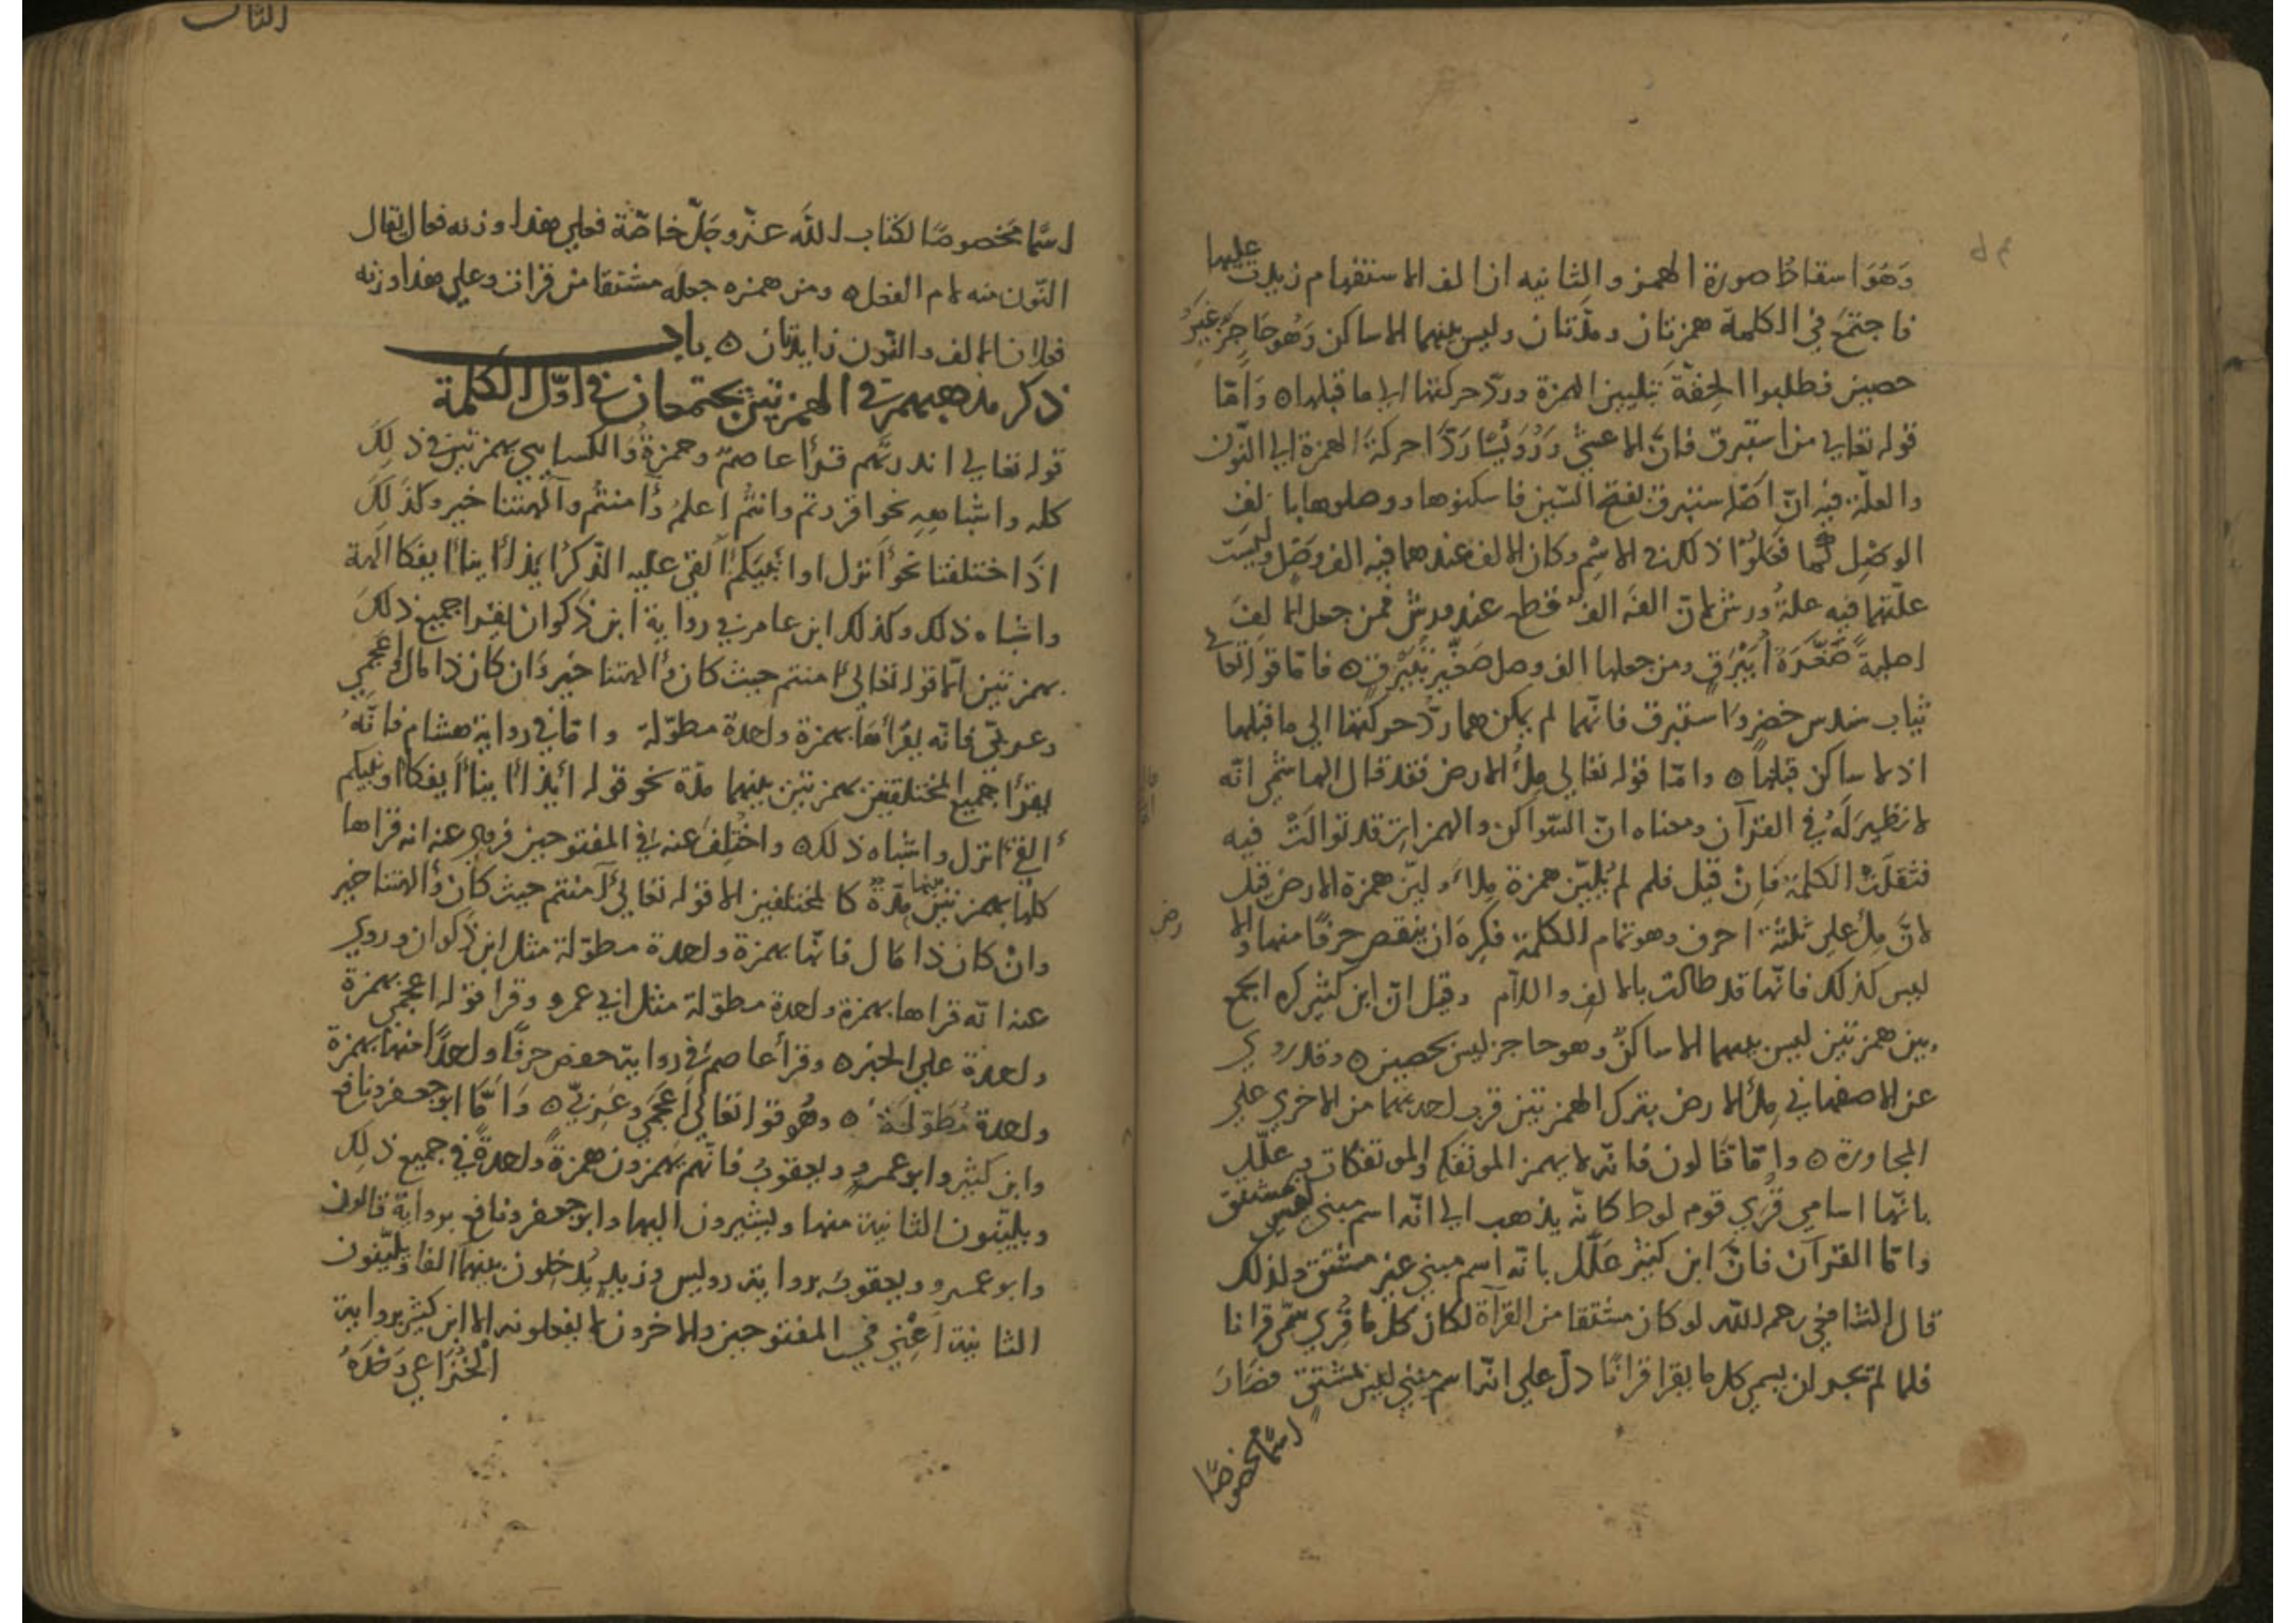 وَهُوَ اسقاط صورة الهمز والثانيه ان الف الاستفهام زيدت عليها
فاجتمَعَ في الكلمة همزتان ومدّتان وليس بينهما الا ساكن وَهُو حَاجِزٌ غيرُ
حصين فطلبوا الخِفَّة بتليين الهمزة وردّ حركتها الى ما قبلها ه وَامّا
قوله تعالى من استبرق فانّ الاعشى وَرُوَيْسًا رَدَّا حركةَ الهمزة الى النّون
والعلّة فيه انّ اصله ستبرق بفتح السّين فاسكنوها ووصلوها بالف
الوصْل كما فعلوا ذلك في الاسْم وكان الالف عندهما فيه الف وَصْل وليسَت
علّتهما فيه علةُ ورش لانّ الفَه الفُ قطع عند ورش فمن جعل الالِفَ
اصليةً صَغَّرَهُ أُبَيْرَق ومن جعلها الف وصل صَغَّر تُبَيْرِق ه فامّا قوله تعالى
ثياب سندس خضر واستبرق فانّهما لم يمكن هما ردّ حركتها الى ما قبلها
اذ لا ساكن قبلها ه وامّا قوله تعالى مِلْءُ الارض فقد قال الهاشمي انّه
لا نظيرَ لَهُ في القرآن ومعناه انّ السّواكن والهمزاتِ قد توالَتْ فيه
فثقلَتْ الكلمة فَاِنْ قيل فلم لم يُليّن همزة مِلْء وليّن همزة الارض قيل
لانّ مِلْء على ثلثة احرف وهو تمام الكلمة فكرِهَ ان ينقص حرفًا منها والارض
ليس كذلك فانّها قد طالت بالالف واللام وقيل انّ ابن كثير كره الجمع
بين همزتين ليس بينهما الا ساكنٌ وهو حاجز ليس بحصين ه وقد روي
عن الاصفهاني في مِلْءُ الارض بترك الهمزتين قرب احديهما من الاخري على
المجاورة ه وامّا قالون فانّه لا يهمز المؤتفكه والمؤتفكات وعلّل
بانّها اسامي قُرَى قوم لوط كانّه يذهب الى انّه اسم مبني غير مشتق
وامّا القرآن فانّ ابن كثير عَلّل بانّه اسم مبني غير مشتق ولذلك
قال الشافعي رحمه الله لو كان مشتقا من القراة لكان كل ما قُرِي سمّى قرانا
فلما لم يجز ان يسمى كل ما يقرا قرانًا دلّ على انّه اسم مبني ليس بمشتق فصَارَ
اسمًا مخصوصًا
الثالث
اسمًا مخصوصًا لكتاب الله عزّ وجَلّ خاصّة فعلى هذا وزنه فعال يقال
النّون منه لام الفعل ه ومن همزه جعله مشتقا من قرات وعلى هذا وزنه
فعلان الالف والنّون زايدتان ه باب
ذكر مذهبهم في الهمزتين يجتمعان في اوّل الكلمة
قوله تعالى انذرتَهم قرأ عاصم وحمزة والكسايي بهمزتين في ذلِكَ
كله واشباهِهِ نحو اقررتم وانتُم اعلمُ وَأامنتُم وآلهتنا خير وكذلِكَ
اذا اختلفتا نحو أانزل او انبيكم أالقي عليه الذّكر أيذا أينا أيفكا الهة
واشباه ذلك وكذلك ابن عامر في رواية ابن ذكوان يقرا جميع ذلك
بهمزتين الا قوله تعالى أامنتم حيث كان وأالهتنا خير وَأن كان ذا مال وأعجمي
وعربيّ فانّه يقرأهَا بهمزة واحدة مطوّلة وامّا في رواية هشام فانّهُ
يقرأ جميع المختلفتين بهمزتين بينهما مدّة نحو قوله أيذا أينا أيفكا أونبيكم
أالقي أانزل واشباه ذلك ه واختُلِف عنه في المفتوحين فروي عنه انه قراها
كلها بهمزتين بينهما مدّة كالمختلفين الا قوله تعالى أآمنتم حيث كان وأالهتنا خير
وانْ كان ذا مال فانّها بهمزة واحدة مطوّلة مثل ابن ذكوان وروي
عنه انّه قراها بهمزة واحدة مطوّلة مثل ابي عمرو وقرا قوله اعجمي بهمزة
واحدة على الخبر ه وقرأ عاصم في رواية حفص حرفًا واحدًا منها بهمزة
واحدة مُطَوّلَة ه وهُو قوله تعالى أعجَمي وعَرَبيّ ه وَامّا ابو جعفر ونافع
وابن كثير وابو عمرو ويعقوبُ فانّهم يهمزون همزةً واحدةً في جميع ذلك
ويليّنون الثانية منها ويشيرون اليها وابو جعفر ونافع برواية قالون
وابو عمرو ويعقوب برواية رويس وزيد يُدخلون بينهما الفا ويليّنون
الثانية اَعْنِي في المفتوحين والاخرون لا يفعلونه الا ابن كثير برواية
الخُزَاعي وَحْدَهُ